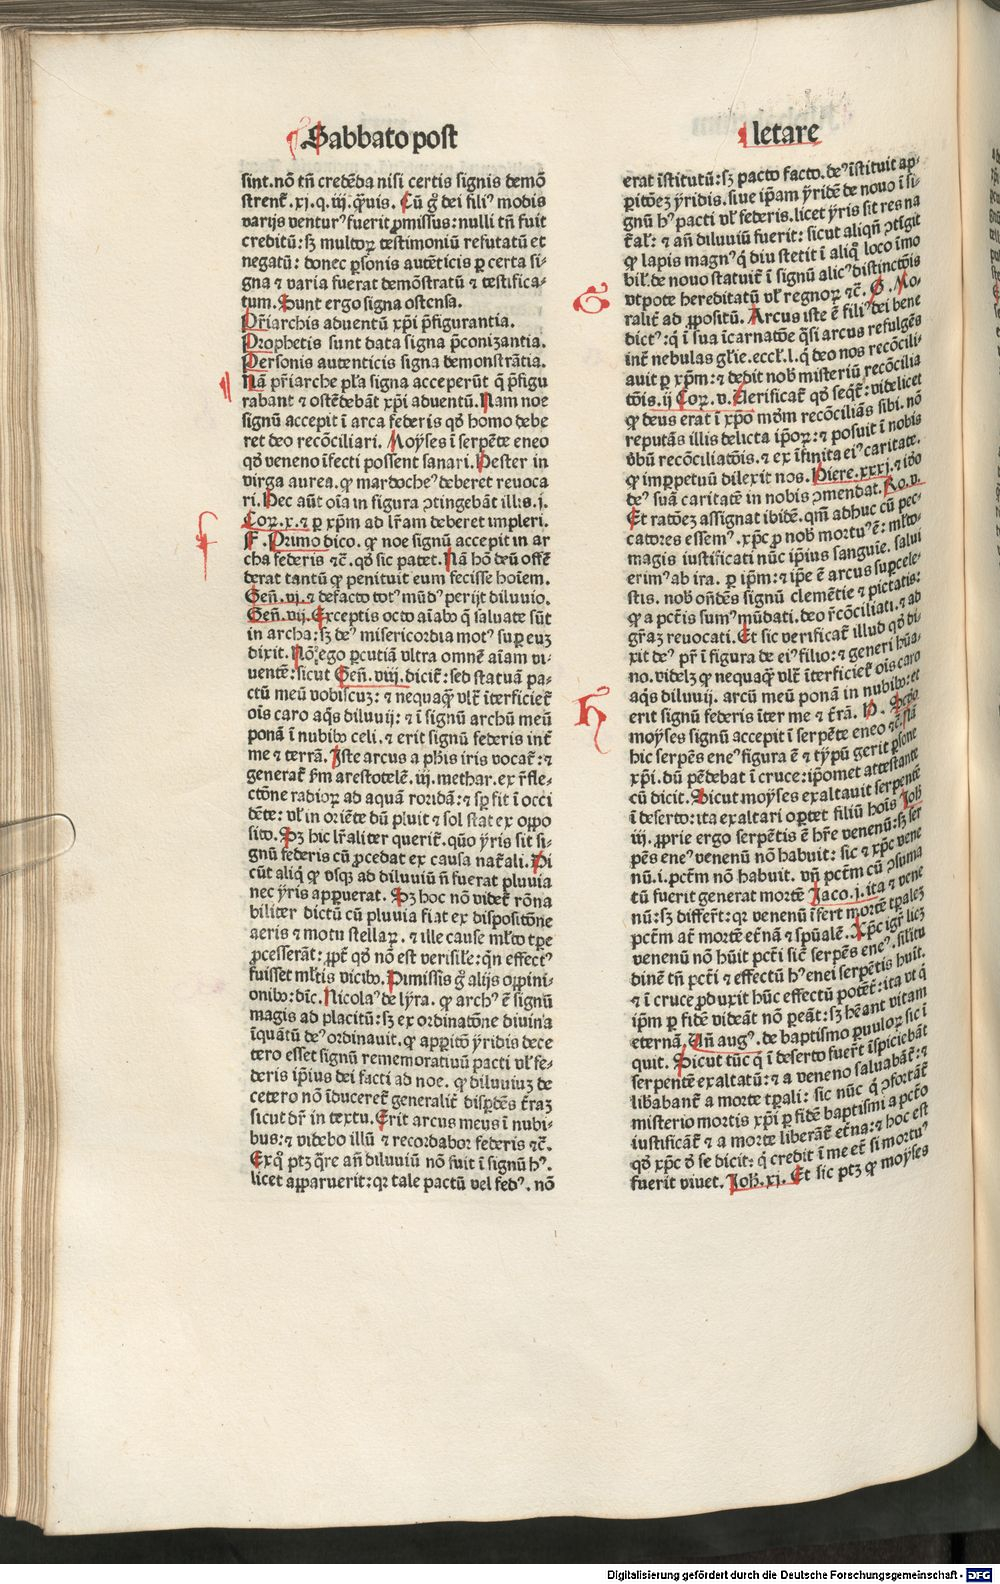 Sabbato post
letare
sint. nō tñ credēda nisi certis signis demō
strent̃. xj. q. iij. q̃uis. Cū g̃ dei filiꝰ modis
varijs venturꝰ fuerit ꝓmissus: nulli tñ fuit
creditū: sꝫ multoꝝ testimoniū refutatū et
negatū: donec ꝑsonis autēticis ꝑ certa si-
gna ⁊ varia fuerat demōstratū ⁊ testifica-
tum. Sunt ergo signa ostensa.
Pr̃iarchis aduentū xp̄i p̄figurantia.
Prophetis sunt data signa p̄conizantia.
Personis autenticis signa demonstrātia.
Nā pr̃iarche pl̃a signa acceperūt q̃ p̄figu
rabant ⁊ ostēdebāt xp̄i aduentū. Nam noe
signū accepit ī arca federis qḋ homo debe
ret deo recōciliari. Moyses ī serpēte eneo
qḋ veneno īfecti possent sanari. Hester in
virga aurea. ꝙ mardocheꝰ deberet reuoca
ri. Hec aūt oīa in figura ↄtingebāt illis. j.
Coꝝ. x. ⁊ ꝑ xp̄m ad lr̄am deberet impleri.
F. Primo dico. ꝙ noe signū accepit in ar
cha federis ⁊c̃. qḋ sic patet. Nā hō deū offē
derat tantū ꝙ penituit eum fecisse hoīem.
Geñ. vj. ⁊ defacto totꝰ mūdꝰ perijt diluuio.
Geñ. vij. Exceptis octo aīab̃ q̃ saluate sūt
in archa: sꝫ deꝰ misericordia motꝰ suꝑ euꝫ
dixit. Nō ego ꝑcutiā vltra omnē aīam vi-
uentē: sicut Geñ. viij. dicit̃: sed statuā pa-
ctū meū vobiscuꝫ: ⁊ nequaq̃ vl̃t̃ īterficiet̃
oīs caro aq̃s diluuij: ⁊ ī signū archū meū
ponā ī nubib̃ celi. ⁊ erit signū federis int̃
me ⁊ terrā. Iste arcus a ph̄is iris vocat̃: ⁊
generat̃ ẜm arestotelē. iij. methar. ex r̃fle-
ctōne radioꝝ ad aquā roridā: ⁊ sꝑ fit ī occi
dēte: vl̃ in oriēte dū pluit ⁊ sol stat ex oppo
sito. Sꝫ hic lr̄aliter querit̃. q̃uo yris sit si-
gnū federis cū ꝓcedat ex causa nat̃ali. Di
cūt aliq̃ ꝙ vsqꝫ ad diluuiū ñ fuerat pluuia
nec yris apparuerat. Sꝫ hoc nō videt̃ rōna
biliter dictū cū pluuia fiat ex dispositōne
aeris ⁊ motu stellaꝝ. ⁊ ille cause ml̃to tꝑe
p̄cesserāt: ꝓpt̃ qḋ nō est verisile: q̃n effectꝰ
fuisset ml̃tis vicib̃. Dimissis g̃ alijs oppini-
onib̃: dic̄. Nicolaꝰ de lyra. ꝙ archꝰ ē signū
magis ad placitū: sꝫ ex ordinatōne diuina
īquātū deꝰ ordinauit. ꝙ apꝑitō yridis dece
tero esset signū rememoratiuū pacti vl̃ fe-
deris ip̄ius dei facti ad noe. ꝙ diluuiuꝫ de
cetero nō īduceret̃ generalit̃ disꝑdēs t̃raꝫ
sicut dr̄ in textu. Erit arcus meus ī nubi-
bus: ⁊ videbo illū ⁊ recordabor federis ⁊c̃.
Exq̊ ptꝫ q̃re añ diluuiū nō fuit ī signū hꝰ.
licet apparuerit: qꝛ tale pactū vel fedꝰ. nō
erat īstitutū: sꝫ pacto facto. deꝰ īstituit ap-
ꝑitōeꝫ yridis. siue ip̄am yridē de nouo ī si-
gnū hꝰ pacti vl̃ federis. licet yris sit res na
t̃al̃: ⁊ añ diluuiū fuerit: sicut aliqñ ↄtigit
ꝙ lapis magnꝰ q̃ diu stetit ī aliq̊ loco īmo
bil̃. de nouo statuit̃ ī signū alicꝰ distinctōis
vtpote hereditatū vl̃ regnoꝝ ⁊c̃. G. Mo-
ralit̃ ad ꝓpositū. Arcus iste ē filiꝰ dei bene
dictꝰ: q̃ ī sua īcarnatōe q̃si arcus refulgēs
int̃ nebulas gl̃ie. eccl̃. l. q̃ deo nos recōcili-
auit ꝑ xp̄m: ⁊ dedit nob̃ misteriū recōcilia
tōis. ij Coꝝ. v. Clerificat̃ qḋ seq̃t̃: videlicet
ꝙ deus erat ī xp̄o mōm recōciliās sibi. nō
reputās illis delicta ip̄oꝝ: ⁊ posuit ī nobis
v̄bū recōciliatōis. ⁊ ex īfinita eiꝰ caritate.
ꝙ imꝑpetuū dilexit nos. Hiere. xxxj. ⁊ iō
deꝰ suā caritatē in nobis ↄmendat. Ro. v.
Et ratōeꝫ assignat ibidē. qm̄ adhuc cū pec-
catores essemꝰ. xp̄c ꝓ nob̃ mortuꝰ ē: ml̃to
magis iustificati nūc ip̄ius sanguīe. salui
erimꝰ ab ira. ꝑ ip̄m: ⁊ ip̄e ē arcus suꝑcele-
stis. nob̃ oñdēs signū clemētie ⁊ pietatis:
ꝙ a pct̄is sumꝰ mūdati. deo r̃cōciliati. ⁊ ad
gr̄aꝫ reuocati. Et sic verificat̃ illud qḋ di-
xit deꝰ pr̃ ī figura de eiꝰ filio: ⁊ generi hūa-
no. videlꝫ ꝙ nequaq̃ vl̃t̃ īterficiet̃ oīs caro
aq̃s diluuij. arcū meū ponā in nubib̃: et
erit signū federis īter me ⁊ t̃rā. H. Scḋo
moyses signū accepit ī serpēte eneo ⁊c̃. Nā
hic serpēs eneꝰ figura ē ⁊ typū gerit ꝑsone
xp̄i. dū pēdebat ī cruce: ip̄omet attestante
cū dicit. Sicut moyses exaltauit serpentē
ī deserto: ita exaltari oportet filiū hoīs Joh̄
iij. ꝓprie ergo serpētis ē hr̄e venenū: sꝫ ser
pēs eneꝰ venenū nō habuit: sic ⁊ xp̄c vene
nū. i. pct̄m nō habuit. vñ pct̄m cū ↄsuma
tū fuerit generat mortē Jaco. j. ita ⁊ vene
nū: sꝫ differt̃: qꝛ venenū īfert mortē tꝑaleꝫ
pct̄m at̃ mortē et̃nā ⁊ sp̄ualē. Xp̄c igr̃ licꝫ
venenū nō hūit pct̄i sic̃ serpēs eneꝰ. silitu
dinē tñ pct̄i ⁊ effectū hꝰ enei serpētis hūit.
⁊ ī cruce ꝓduxit hūc effectū potēt̃: ita vt q̃
ip̄m ꝑ fidē videāt nō ꝑeāt: sꝫ hēant vitam
eternā. Añ augꝰ. de baptismo ꝑuuloꝝ sic ī
quit. Sicut tūc q̃ ī deserto fuer̃t īspiciebāt
serpentē exaltatū: ⁊ a veneno saluabāt̃: ⁊
libabant̃ a morte tꝑali: sic nūc q̃ ↄfortāt̃
misterio mortis xp̄i ꝑ fidē baptismi a pct̄o
iustificāt̃ ⁊ a morte liberāt̃ et̃na: ⁊ hoc est
qḋ xp̄c d̄ se dicit: q̃ credit ī me et̃ si mortuꝰ
fuerit viuet. Joh̄. xj. Et sic ptꝫ ꝙ moyses
G
f
h
Digitalisierung gefördert durch die Deutsche Forschungsgemeinschaft - DFG